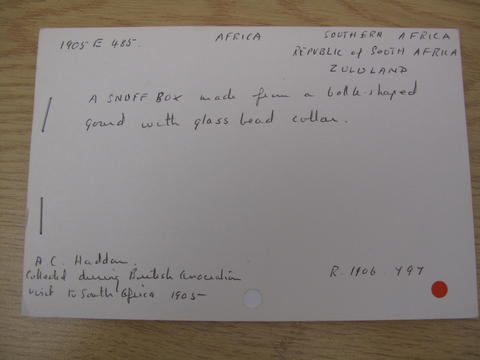 1905 E 485.
AFRICA
SOUTHERN AFRICA
REPUBLIC of SOUTH AFRICA
ZULULAND
A SNUFF BOX made from a bottle-shaped
gourd with glass bead collar.
A. C. Haddon.
Collected during British Association
visit to South Africa 1905
R. 1906.